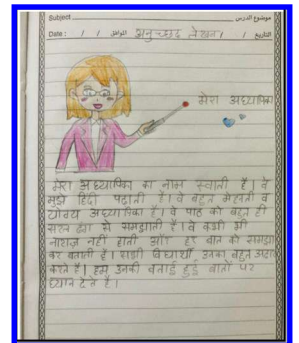 Subject موضوع الدرس
Date : / / الموافق अनुच्छेद लेखन / / التاريخ
मेरा अध्यापिका
मेरा अध्यापिका का नाम स्वाती है। वे
मुझे हिंदी पढ़ाती है। वे बहुत मेहनती व
योग्य अध्यापिका है। वे पाठ को बहुत ही
सरल ढंग से समझाती है। वे कभी भी
नाराज़ नहीं होती और हर बात को समझा
कर बताती है। सभी विद्यार्थी उनका बहुत आदर
करते है। हम उनकी बताई हुई बातों पर
ध्यान देते है।